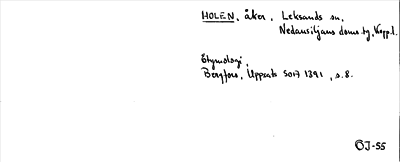 HOLEN, åker, Leksands sn,
Nedansiljans doms.tg, Kopp.l.
Etymologi,
Bergfors, Uppsats SOIF 1391, s. 8.
ÖJ-55